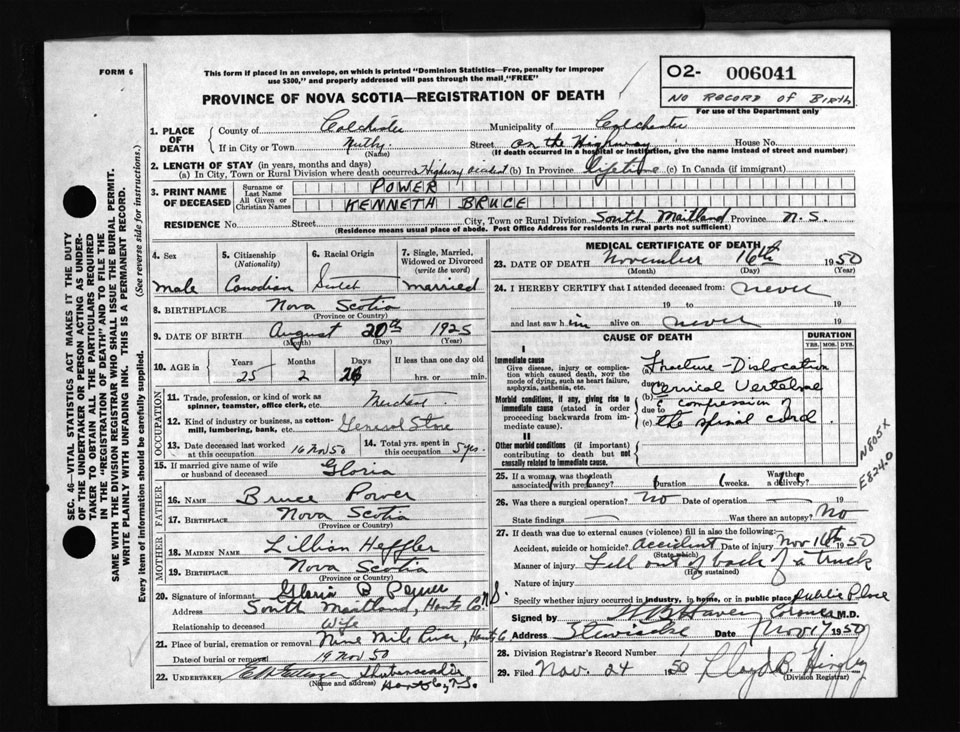 FORM 6
This form if placed in an envelope, on which is printed "Dominion Statistics—Free, penalty for improper
use $300," and properly addressed will pass through the mail, "FREE"
PROVINCE OF NOVA SCOTIA—REGISTRATION OF DEATH
O2- 006041
NO RECORD OF BIRTH
For use of the Department only
SEC. 46—VITAL STATISTICS ACT MAKES IT THE DUTY
OF THE UNDERTAKER OR PERSON ACTING AS UNDER-
TAKER TO OBTAIN ALL THE PARTICULARS REQUIRED
IN THE "REGISTRATION OF DEATH" AND TO FILE THE
SAME WITH THE DIVISION REGISTRAR WHO SHALL ISSUE THE BURIAL PERMIT.
WRITE PLAINLY WITH UNFADING INK. THIS IS A PERMANENT RECORD.
Every item of information should be carefully supplied. (See reverse side for instructions.)
1. PLACE OF DEATH County of Colchester Municipality of Colchester
If in City or Town Nuttby. Street on the Highway House No.
(Name) (If death occurred in a hospital or institution, give the name instead of street and number)
2. LENGTH OF STAY (in years, months and days)
(a) In City, Town or Rural Division where death occurred Highway accident (b) In Province lifetime (c) In Canada (if immigrant)
3. PRINT NAME OF DECEASED Surname or Last Name POWER
All Given or Christian Names KENNETH BRUCE
RESIDENCE No. Street City, Town or Rural Division South Maitland Province N.S.
(Residence means usual place of abode. Post Office Address for residents in rural parts not sufficient)
4. Sex 5. Citizenship (Nationality) 6. Racial Origin 7. Single, Married, Widowed or Divorced (write the word)
male Canadian married
8. BIRTHPLACE Nova Scotia
(Province or Country)
9. DATE OF BIRTH August 20th 1925
(Month) (Day) (Year)
10. AGE in Years Months Days If less than one day old
25 2 26 hrs. or min.
OCCUPATION
11. Trade, profession, or kind of work as
spinner, teamster, office clerk, etc. Merchant
12. Kind of industry or business, as cotton-
mill, lumbering, bank, etc. General Store
13. Date deceased last worked at this occupation 16 Nov 50 14. Total yrs. spent in this occupation 5 yrs.
15. If married give name of wife
or husband of deceased Gloria
FATHER
16. NAME Bruce Power
17. BIRTHPLACE Nova Scotia
(Province or Country)
MOTHER
18. MAIDEN NAME Lillian Heffler
19. BIRTHPLACE Nova Scotia
(Province or Country)
20. Signature of informant Gloria B Power
Address South Maitland, Hants Co. N.S.
Relationship to deceased Wife
21. Place of burial, cremation or removal Nine Mile River, Hants Co
Date of burial or removal 19 Nov 50
22. UNDERTAKER Shubenacadie
(Name and address) Hants Co, N.S.
MEDICAL CERTIFICATE OF DEATH
23. DATE OF DEATH November 16th 1950
(Month) (Day) (Year)
24. I HEREBY CERTIFY that I attended deceased from: never
19 to 19
and last saw him alive on never 19
CAUSE OF DEATH DURATION
YRS. MOS. DYS.
I
Immediate cause
Give disease, injury or complica-
tion which caused death, NOT the
mode of dying, such as heart failure,
asphyxia, asthenia, etc.
(a) Fracture-Dislocation
due to
Cervical Vertebrae
Morbid conditions, if any, giving rise to
immediate cause (stated in order
proceeding backwards from im-
mediate cause).
(b) compression of
due to
(c) the spinal cord.
II
Other morbid conditions (if important)
contributing to death but not
causally related to immediate cause.
N805X
E824.0
25. If a woman, was the death associated with pregnancy? Duration (weeks. Was there a delivery?
26. Was there a surgical operation? No Date of operation 19
State findings Was there an autopsy? No
27. If death was due to external causes (violence) fill in also the following:
Accident, suicide or homicide? accident Date of injury Nov 16th 1950
(State which)
Manner of injury Fell out of back of a truck
(How sustained)
Nature of injury
Specify whether injury occurred in industry, in home, or in public place public place
Signed by Coroner M.D.
Address Stewiacke Date Nov 17 1950
28. Division Registrar's Record Number 1
29. Filed Nov. 24 1950 Lloyd B.
(Division Registrar)